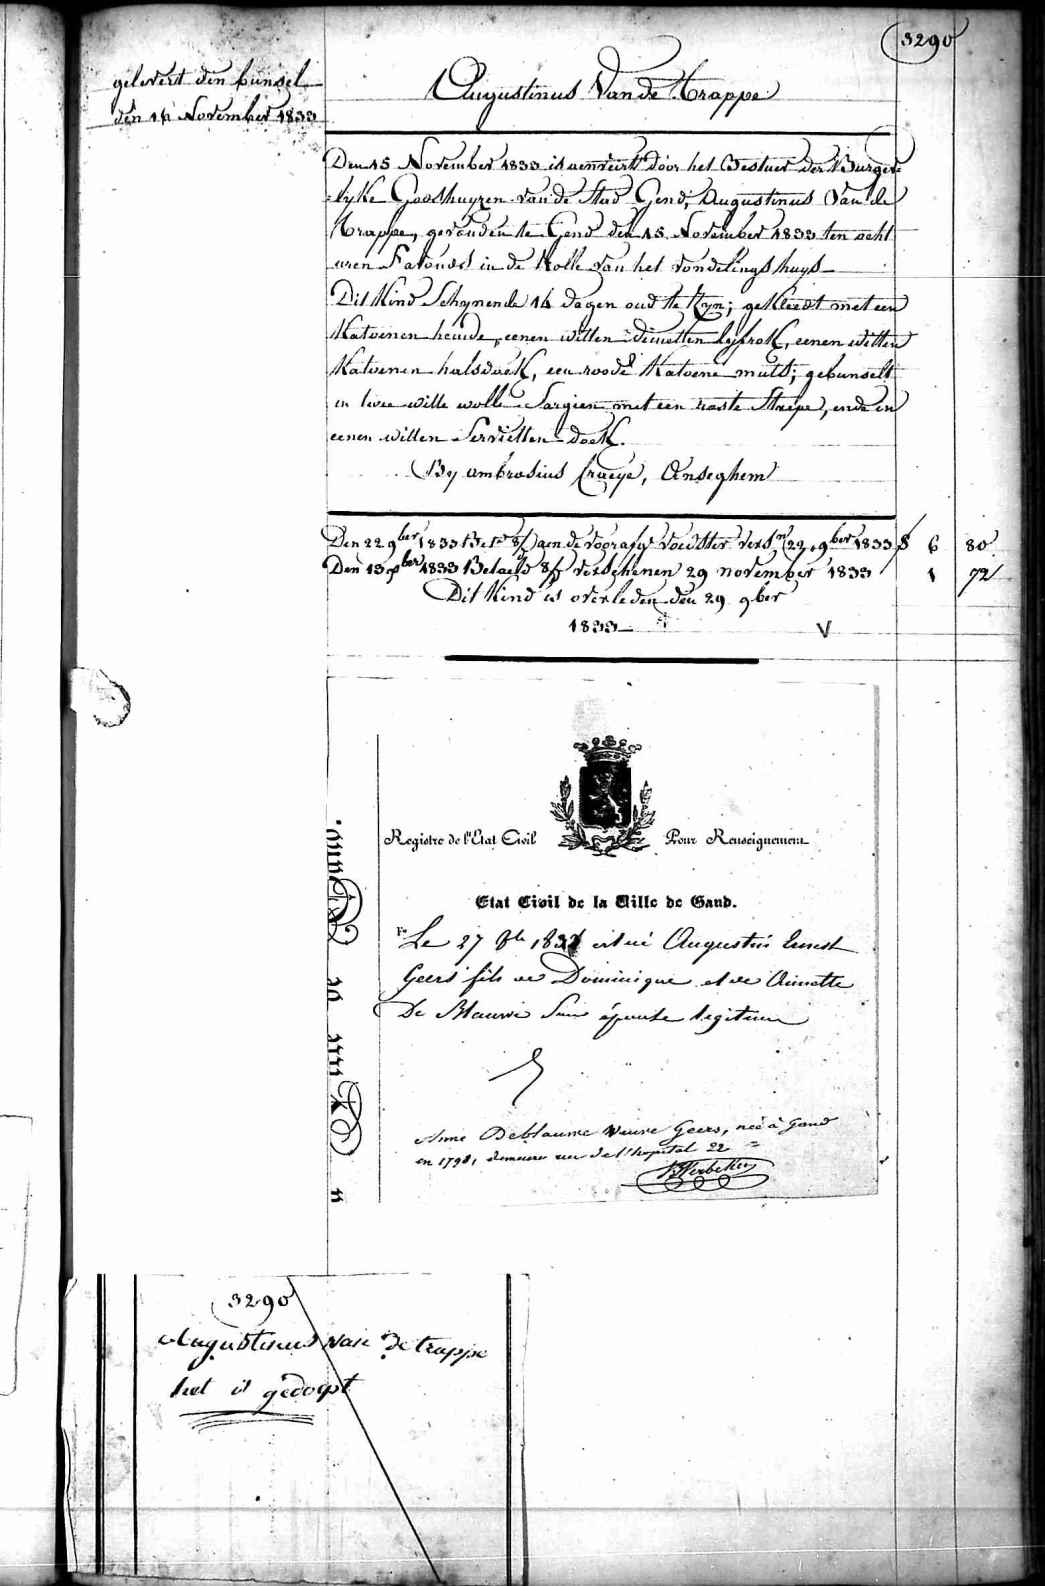 3290
gelevert den bunsel
den 16 November 1833
Augustinus Van de Trappe
Den 15 November 1833 is aenveirt door het Bestuer der Burger-
lyke Godshuyzen van de Stad Gend, Augustinus Van de
Trappe, gevonden te Gend den 15 November 1833 ten acht
uren s'avonds in de Rolle van het vondelingshuys
Dit Kind Schynende 14 dagen oud te Zyn; gekleedt met een
Katoenen hemde, eenen witten dimetten lyfrok, eenen witten
Katoenen halsdoek, een roode Katoene muts; gebunselt
in twee witte wolle Sargien met een vaste Strepe, ende in
eenen witten Servietten doek.
By ambrosius Craeye, Anseghem
Den 22 9ber 1833 aen de voedster 22 9ber 1833 6 80
Den 13 ber 1833 Betaeld verschenen 29 november 1833 1 72
Dit Kind is overleden den 29 9ber
1833
Registre de l'Etat Civil Pour Renseignement
Etat Civil de la Ville de Gand.
Le 27 est né Augustin Ernest
Geers fils de Dominique et de
De son épouse legitime
Anne Deblauwe Veuve Geers, née à Gand
en 1798, demeure rue de l'hopital 22
3290
Augustinus van de trappe
het is gedoopt